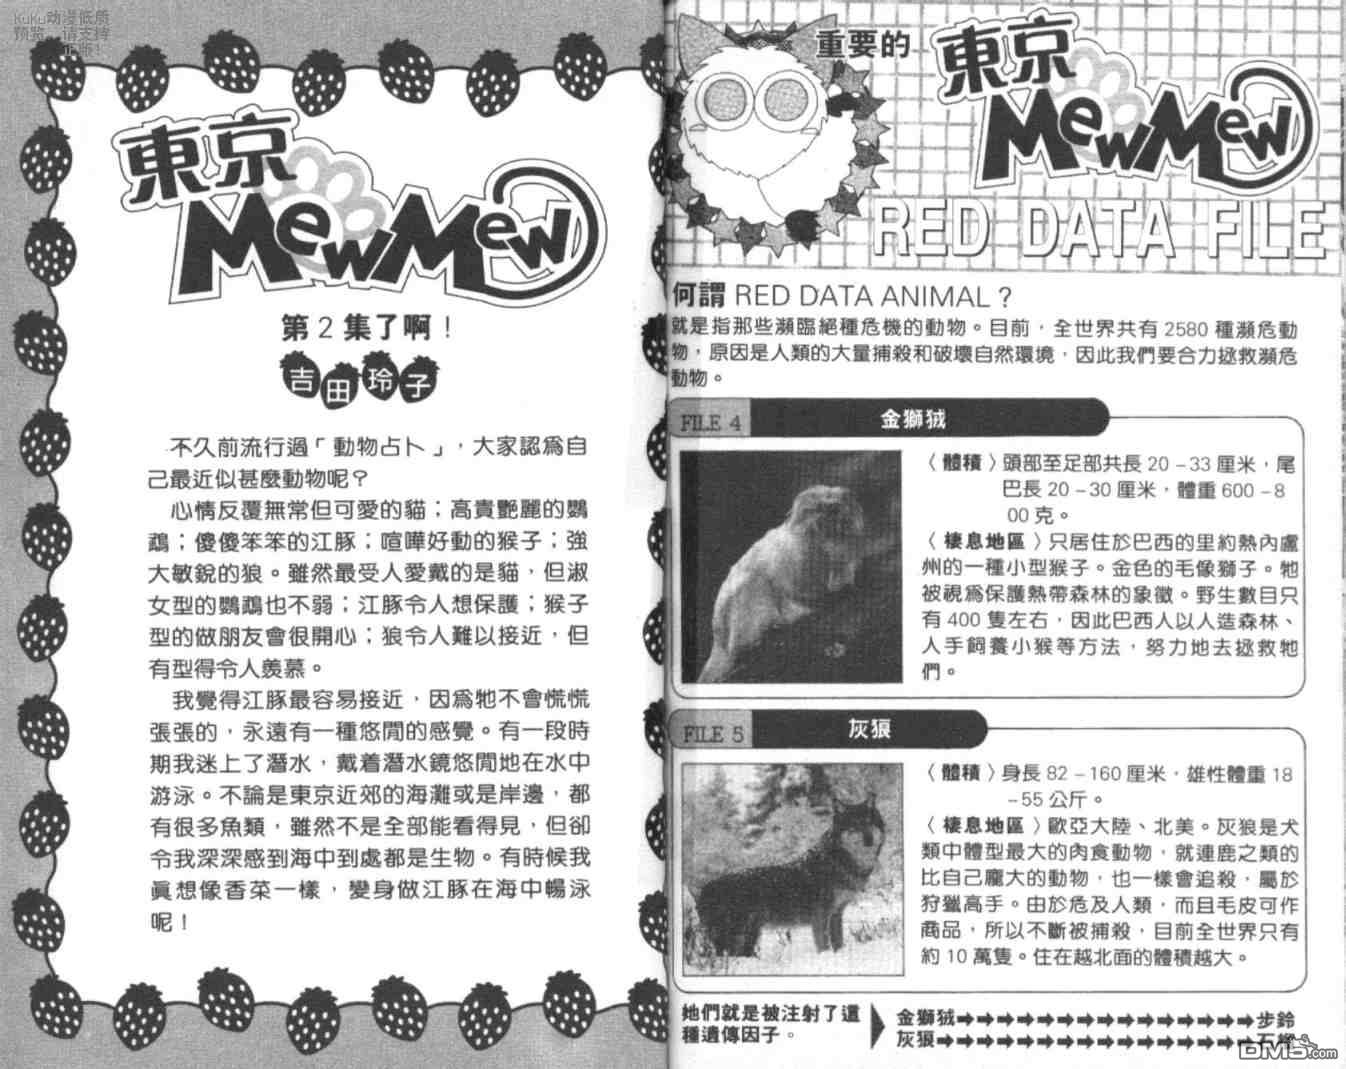 KuKu动漫低质
预览，请支持
正版！
東京
MewMew
第2集了啊！
吉田玲子
不久前流行過「動物占卜」，大家認為自
己最近似甚麼動物呢？
心情反覆無常但可愛的貓；高貴艷麗的鸚
鵡；傻傻笨笨的江豚；喧嘩好動的猴子；強
大敏銳的狼。雖然最受人愛戴的是貓，但淑
女型的鸚鵡也不弱；江豚令人想保護；猴子
型的做朋友會很開心；狼令人難以接近，但
有型得令人羨慕。
我覺得江豚最容易接近，因為牠不會慌慌
張張的，永遠有一種悠閒的感覺。有一段時
期我迷上了潛水，戴着潛水鏡悠閒地在水中
游泳。不論是東京近郊的海灘或是岸邊，都
有很多魚類，雖然不是全部能看得見，但卻
令我深深感到海中到處都是生物。有時候我
真想像香菜一樣，變身做江豚在海中暢泳
呢！
重要的
東京
MewMew
RED DATA FILE
何謂 RED DATA ANIMAL？
就是指那些瀕臨絕種危機的動物。目前，全世界共有 2580 種瀕危動
物，原因是人類的大量捕殺和破壞自然環境，因此我們要合力拯救瀕危
動物。
FILE 4 金獅狨
〈體積〉頭部至足部共長 20－33 厘米，尾
巴長 20－30 厘米，體重 600－8
00 克。
〈棲息地區〉只居住於巴西的里約熱內盧
州的一種小型猴子。金色的毛像獅子。牠
被視為保護熱帶森林的象徵。野生數目只
有 400 隻左右，因此巴西人以人造森林、
人手飼養小猴等方法，努力地去拯救牠
們。
FILE 5 灰狼
〈體積〉身長 82－160 厘米，雄性體重 18
－55 公斤。
〈棲息地區〉歐亞大陸、北美。灰狼是犬
類中體型最大的肉食動物，就連鹿之類的
比自己龐大的動物，也一樣會追殺，屬於
狩獵高手。由於危及人類，而且毛皮可作
商品，所以不斷被捕殺，目前全世界只有
約 10 萬隻。住在越北面的體積越大。
她們就是被注射了這
種遺傳因子。
金獅狨➡➡➡➡➡➡➡➡➡➡➡➡➡➡➡步鈴
灰狼➡➡➡➡➡➡➡➡➡➡➡➡➡➡➡➡
DM5.com